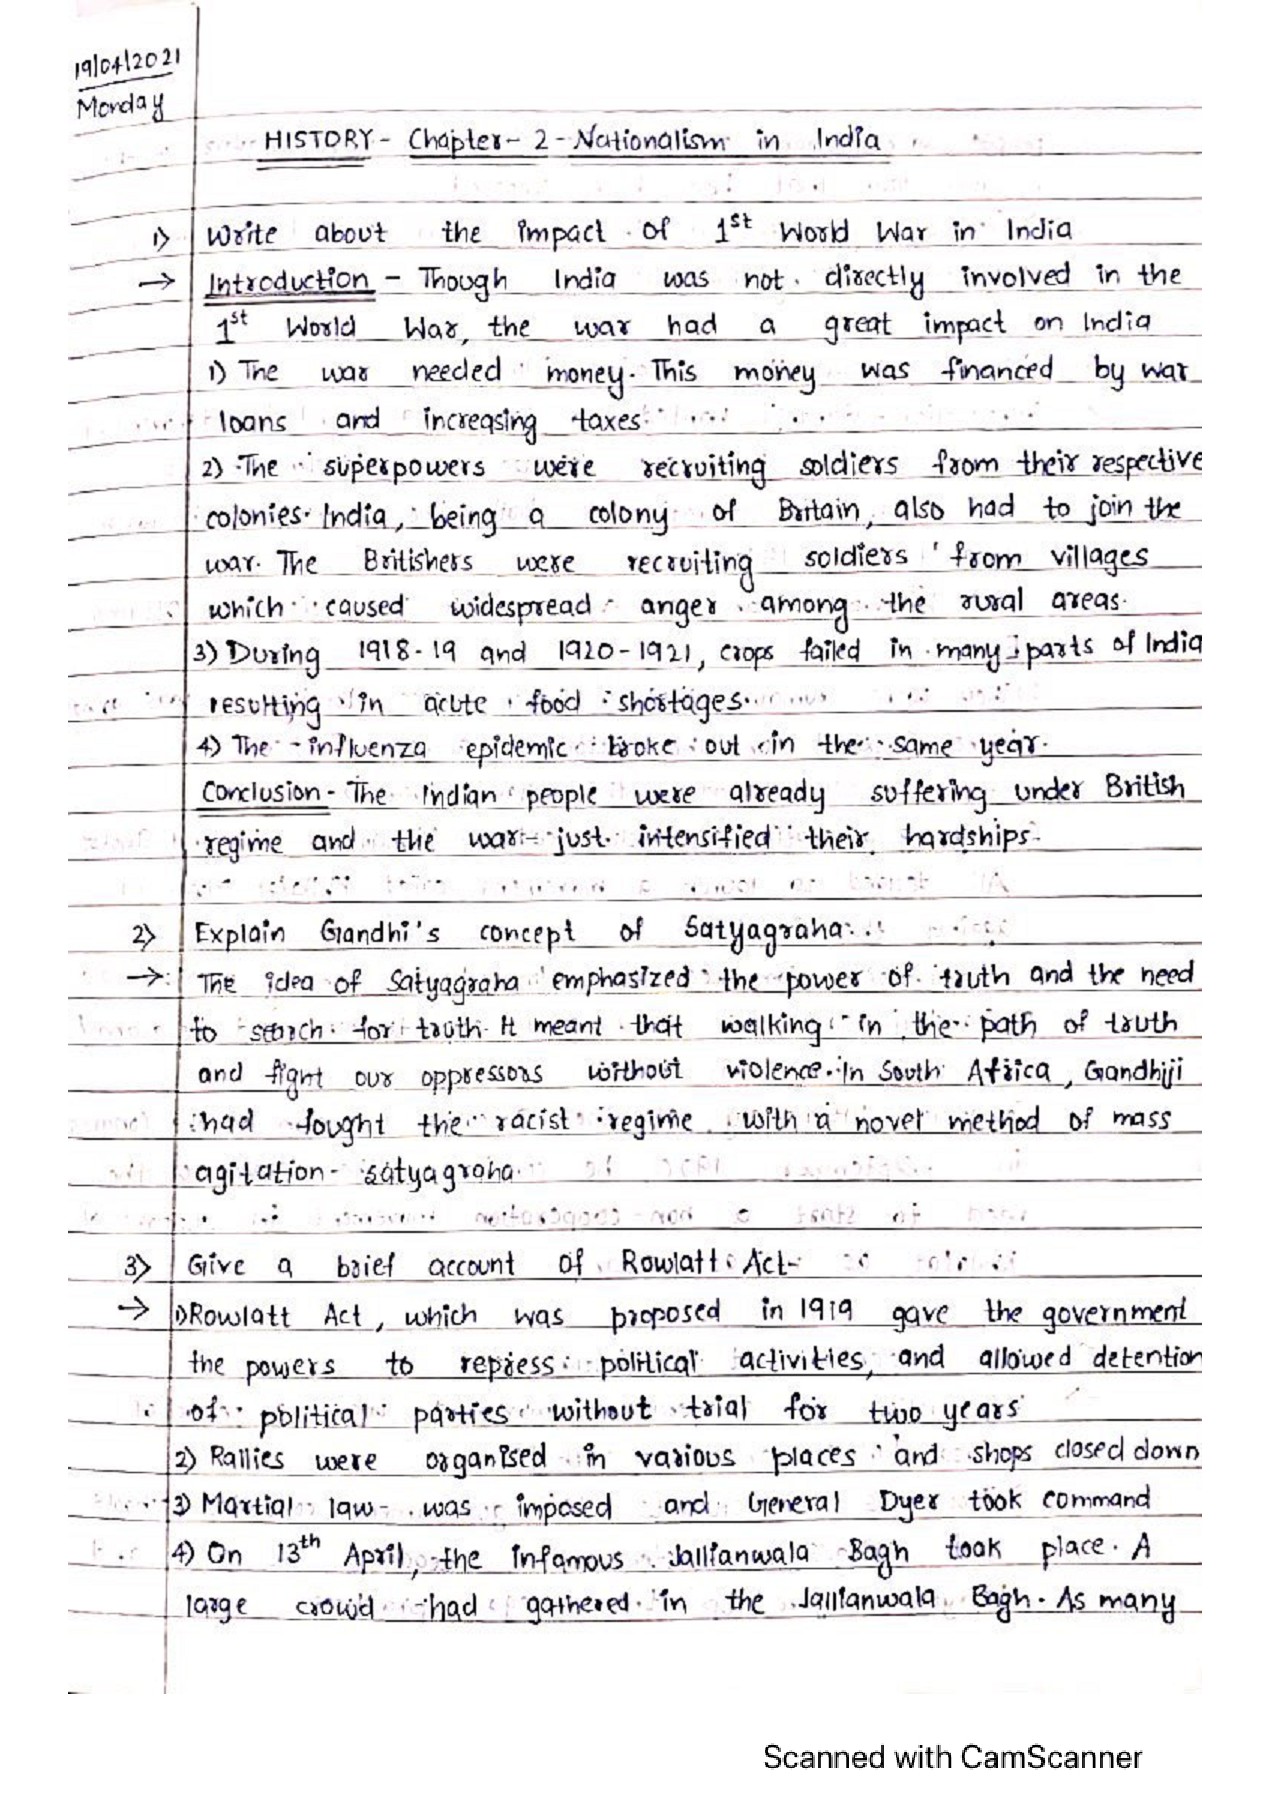 19/04/2021
Monday
HISTORY - Chapter - 2 - Nationalism in India
1) Write about the impact of 1st World War in India
→ Introduction - Though India was not directly involved in the
1st World War, the war had a great impact on India
1) The war needed money. This money was financed by war
loans and increasing taxes
2) The superpowers were recruiting soldiers from their respective
colonies. India, being a colony of Britain, also had to join the
war. The Britishers were recruiting soldiers from villages
which caused widespread anger among the rural areas.
3) During 1918-19 and 1920-1921, crops failed in many parts of India
resulting in acute food shortages.
4) The influenza epidemic broke out in the same year.
Conclusion - The Indian people were already suffering under British
regime and the war just intensified their hardships.
2) Explain Gandhi's concept of Satyagraha.
→ The idea of Satyagraha emphasized the power of truth and the need
to search for truth. It meant that walking in the path of truth
and fight our oppressors without violence. In South Africa, Gandhiji
had fought the racist regime with a novel method of mass
agitation - satyagraha.
3) Give a brief account of Rowlatt Act-
→ 1) Rowlatt Act, which was proposed in 1919 gave the government
the powers to repress political activities, and allowed detention
of political parties without trial for two years
2) Rallies were organised in various places and shops closed down
3) Martial law was imposed and General Dyer took command
4) On 13th April, the infamous Jallianwala Bagh took place. A
large crowd had gathered in the Jallianwala Bagh. As many
Scanned with CamScanner